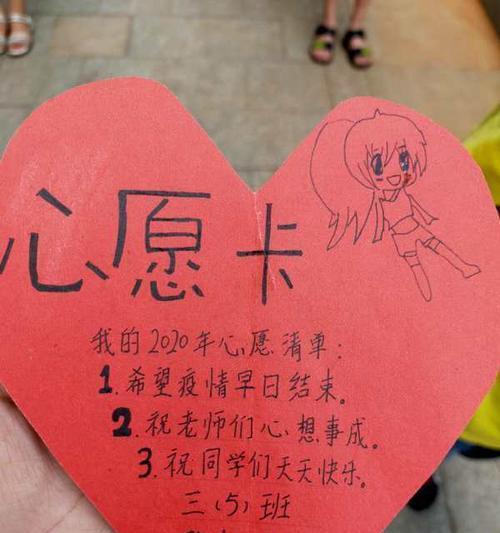 心愿卡
我的2020年心愿清单：
1.希望疫情早日结束。
2.祝老师们心想事成。
3.祝同学们天天快乐。
三（5）班